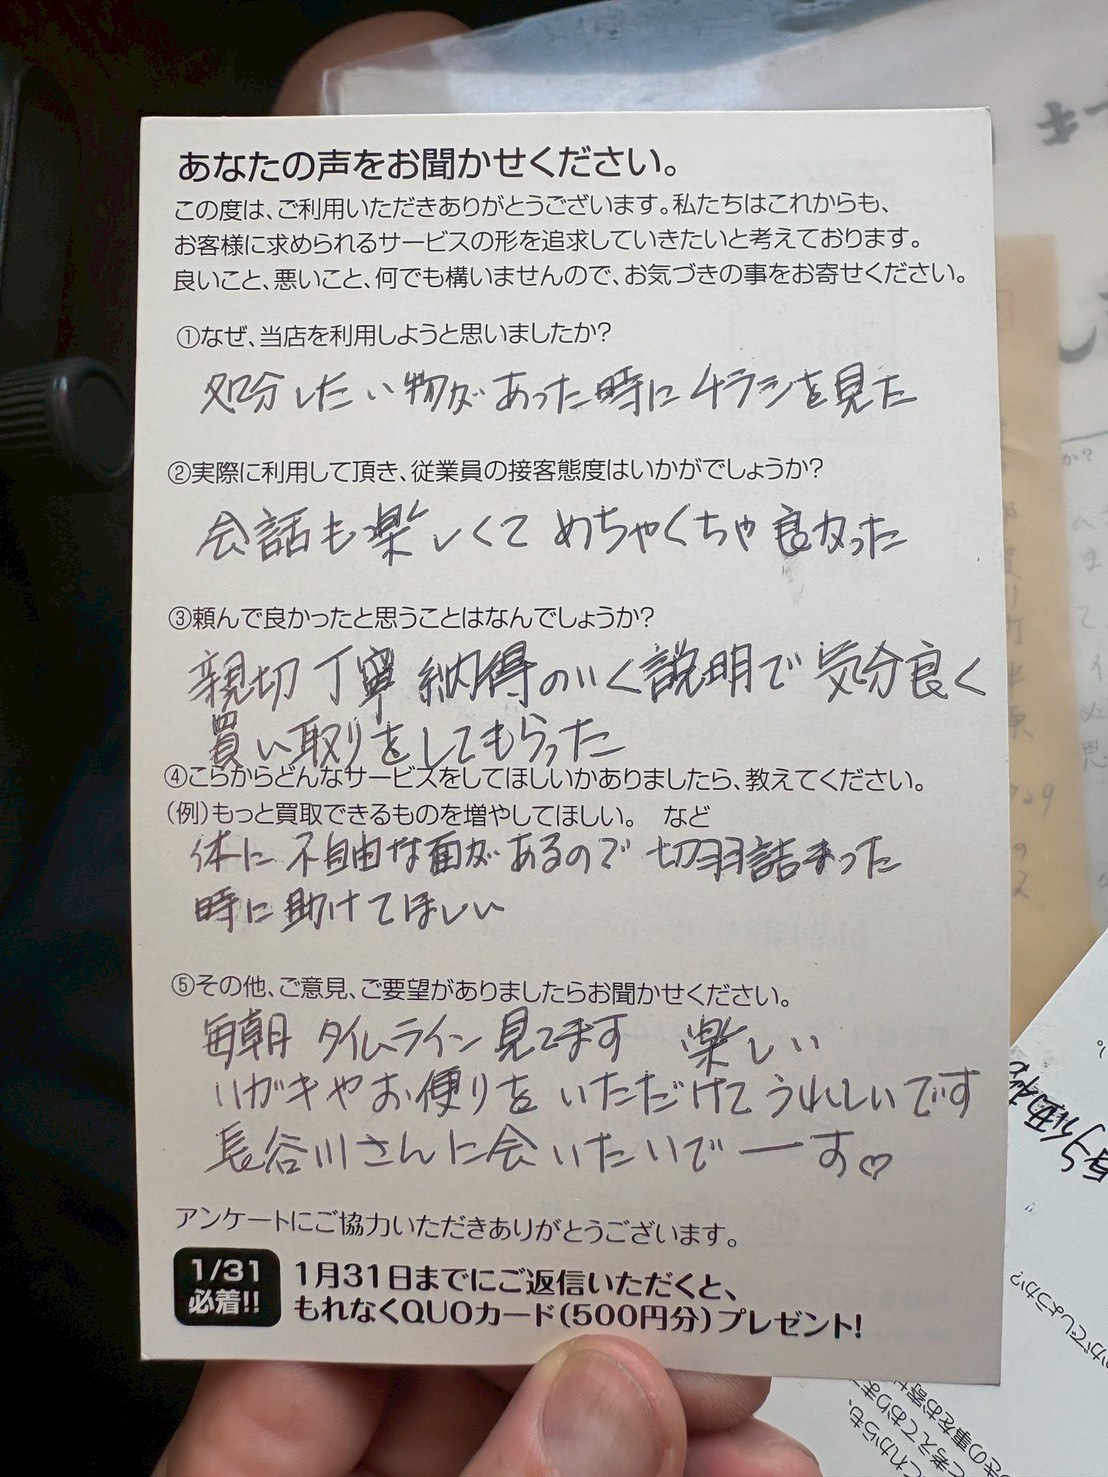 あなたの声をお聞かせください。
この度は、ご利用いただきありがとうございます。私たちはこれからも、
お客様に求められるサービスの形を追求していきたいと考えております。
良いこと、悪いこと、何でも構いませんので、お気づきの事をお寄せください。
①なぜ、当店を利用しようと思いましたか?
処分したい物があった時にチラシを見た
②実際に利用して頂き、従業員の接客態度はいかがでしょうか?
会話も楽しくて めちゃくちゃ良かった
③頼んで良かったと思うことはなんでしょうか?
親切 丁寧 納得のいく説明で気分良く
買い取りをしてもらった
④こらからどんなサービスをしてほしいかありましたら、教えてください。
(例)もっと買取できるものを増やしてほしい。 など
体に不自由な面があるので 切羽詰まった
時に助けてほしい
⑤その他、ご意見、ご要望がありましたらお聞かせください。
毎朝 タイムライン見てます 楽しい
ハガキやお便りを いただけてうれしいです
長谷川さんに会いたいでーす♡
アンケートにご協力いただきありがとうございます。
1/31
必着!!
1月31日までにご返信いただくと、
もれなくQUOカード(500円分)プレゼント!